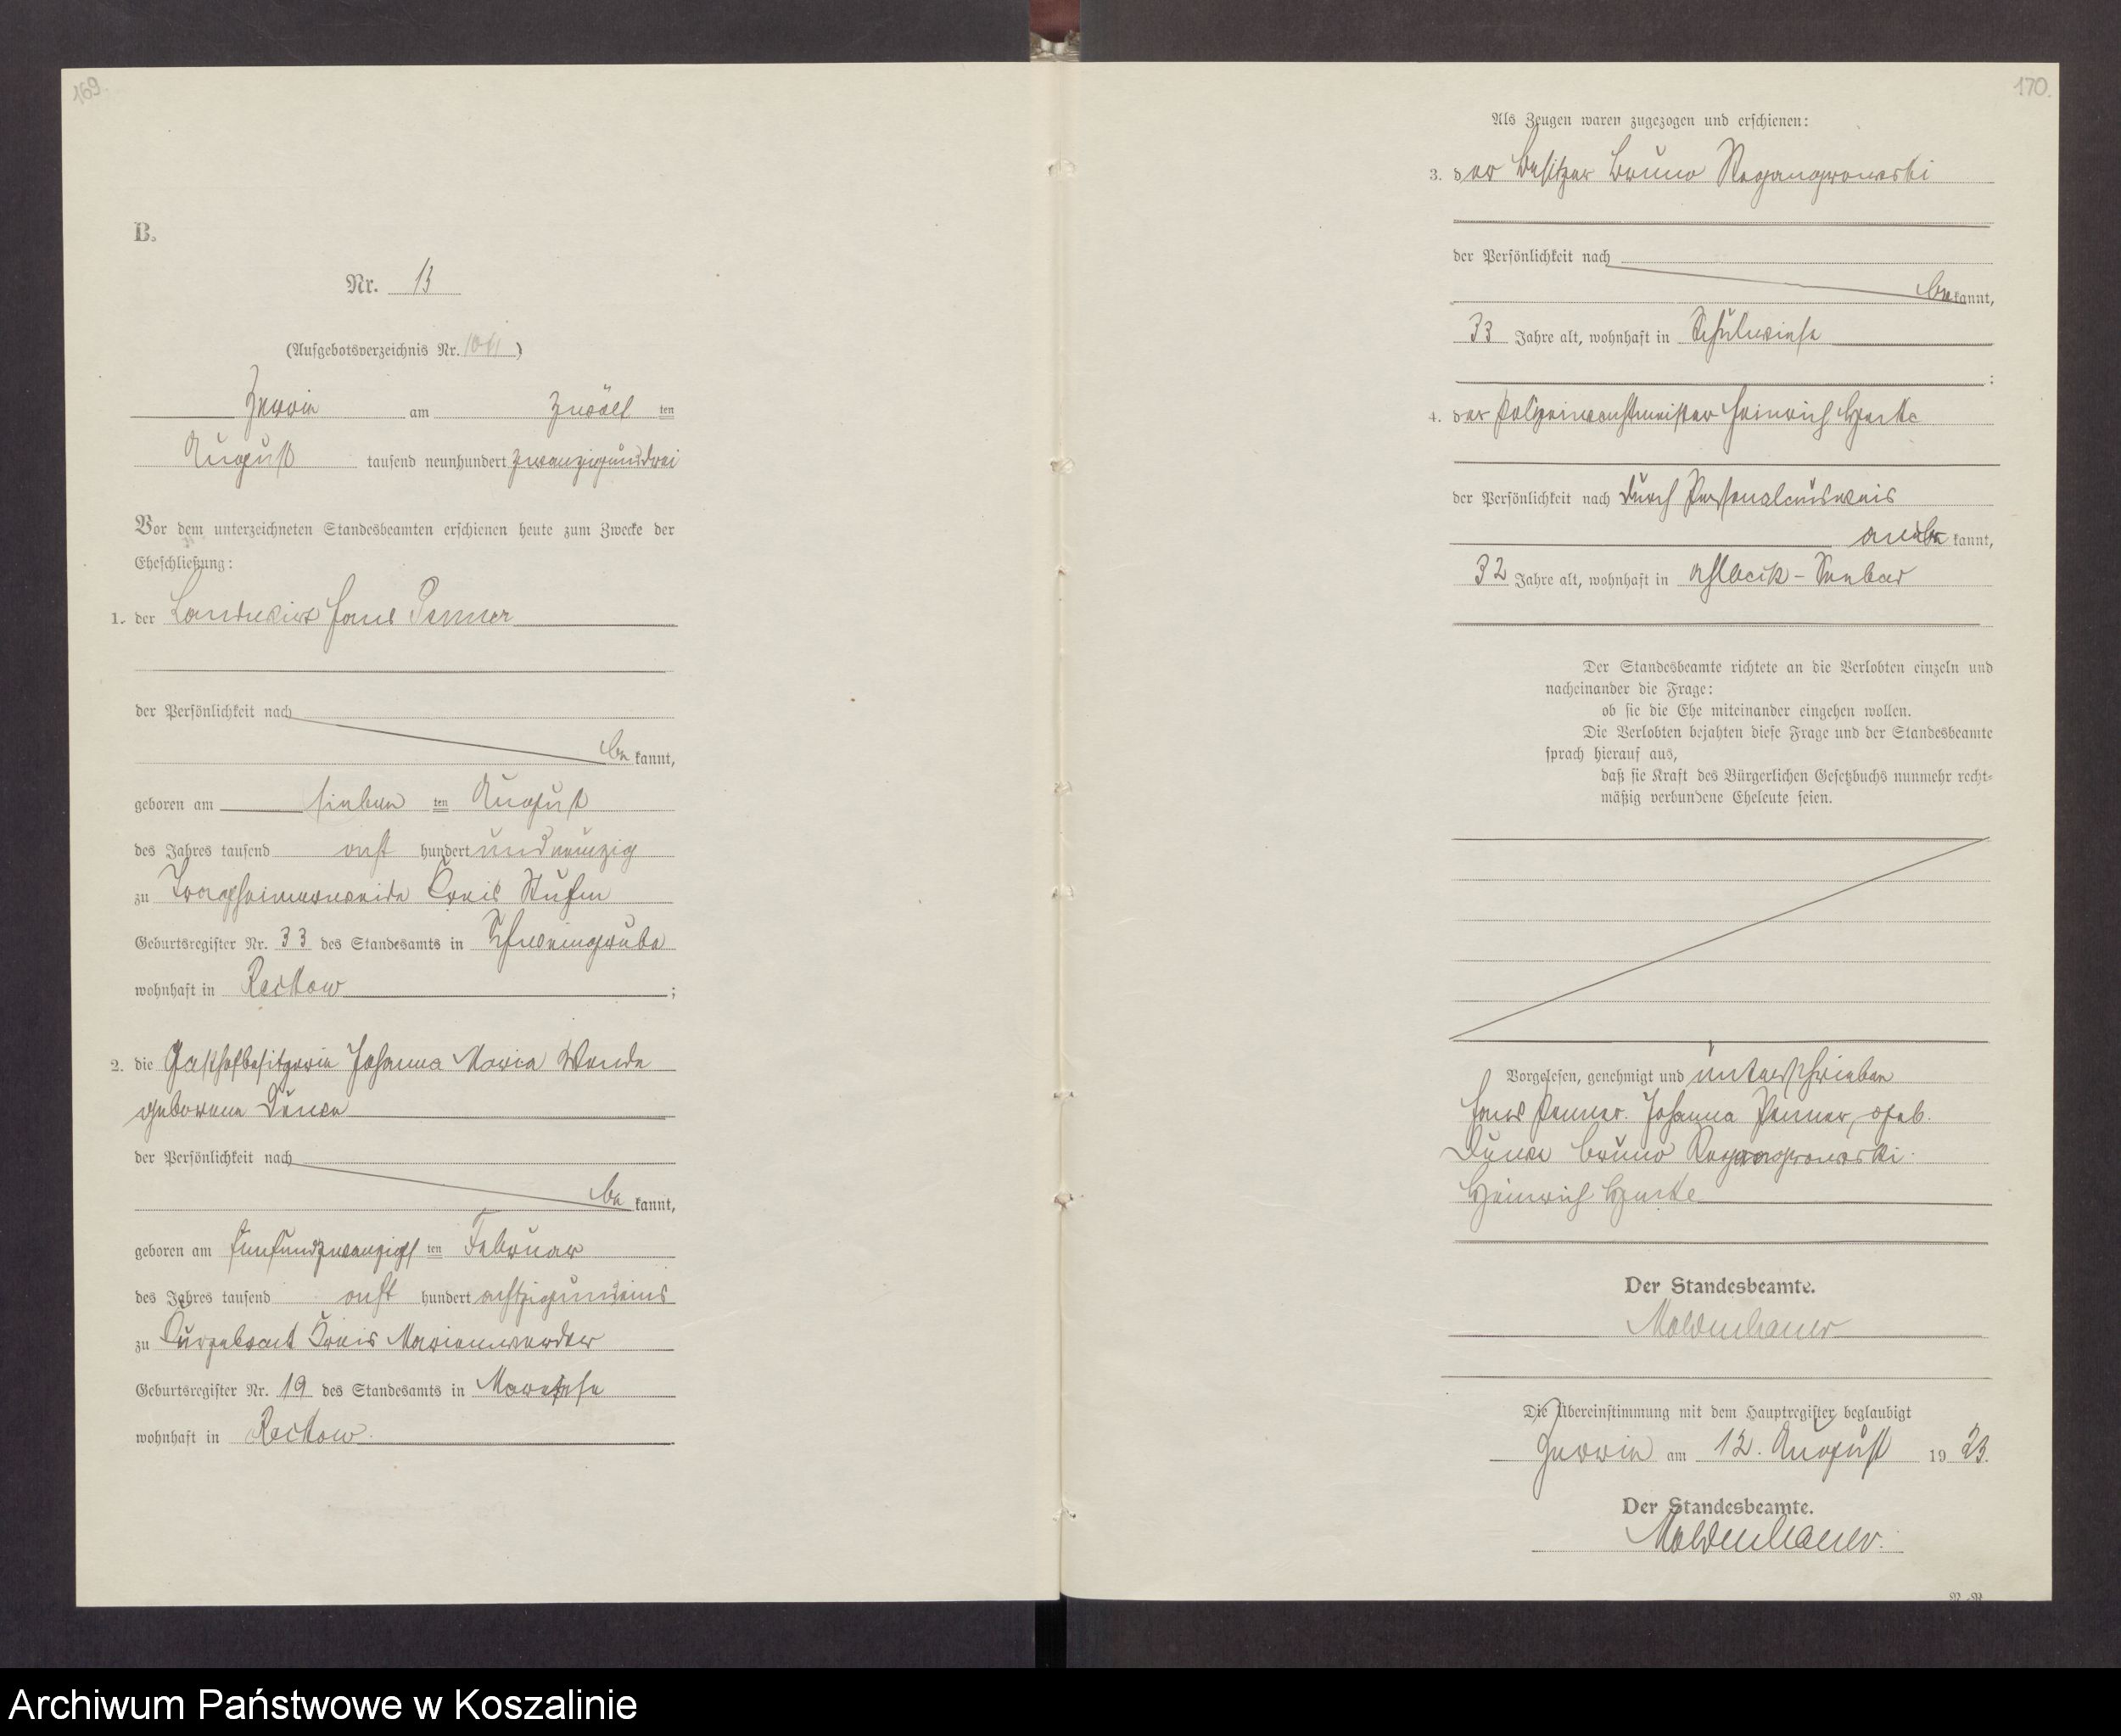 169.
B.
Nr. 13
(Aufgebotsverzeichnis Nr. )
Zewin am zwölf ten
August tausend neunhundert zwanzigunddrei
Vor dem unterzeichneten Standesbeamten erschienen heute zum Zwecke der
Eheschließung:
1. der Landwirt Hans Penner
der Persönlichkeit nach
be kannt,
geboren am sieben ten August
des Jahres tausend acht hundert undneunzig
zu Kreis Stuhm
Geburtsregister Nr. 33 des Standesamts in Schweingrube
wohnhaft in Reckow ;
2. die Gasthofbesitzerin Johanna Maria Wende
geborene
der Persönlichkeit nach
be kannt,
geboren am fünfundzwanzigst ten Februar
des Jahres tausend acht hundert achtzigundeins
zu Kurzebrack Kreis Marienwerder
Geburtsregister Nr. 19 des Standesamts in Mareese
wohnhaft in Reckow.
170.
Als Zeugen waren zugezogen und erschienen:
3. der Besitzer Bruno
der Persönlichkeit nach
be kannt,
33 Jahre alt, wohnhaft in Schulwiese
;
4. der Polizeiwachtmeister Heinrich
der Persönlichkeit nach durch Personalausweis
aner kannt,
32 Jahre alt, wohnhaft in Ahlbeck - Seebad
Der Standesbeamte richtete an die Verlobten einzeln und
nacheinander die Frage:
ob sie die Ehe miteinander eingehen wollen.
Die Verlobten bejahten diese Frage und der Standesbeamte
sprach hierauf aus,
daß sie Kraft des Bürgerlichen Gesetzbuchs nunmehr recht-
mäßig verbundene Eheleute seien.
Vorgelesen, genehmigt und unterschrieben
Hans Penner. Johanna Penner, geb.
Bruno
Heinrich
Der Standesbeamte.
Moldenhauer
Die Übereinstimmung mit dem Hauptregister beglaubigt
Zewin am 12. August 19 23.
Der Standesbeamte.
Moldenhauer.
Archiwum Państwowe w Koszalinie